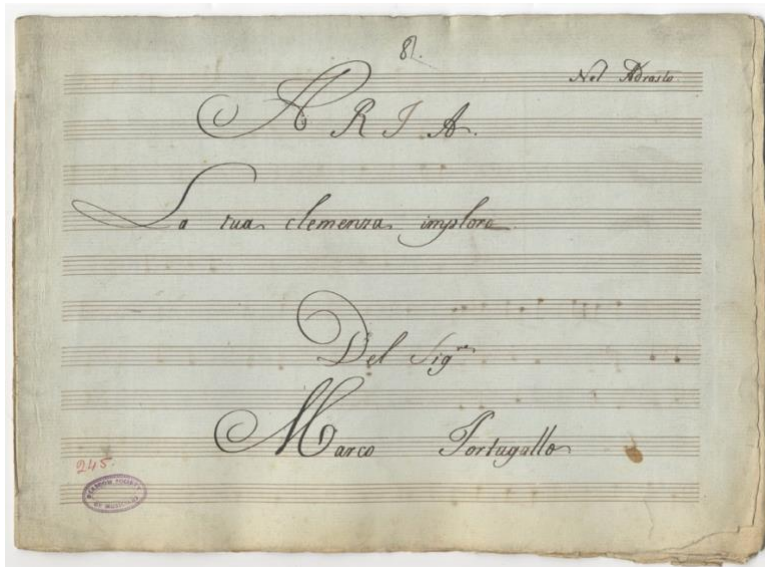 8.
Nel Adrasto.
ARIA.
La tua clemenza imploro
Del Sigr
Marco Portugallo
245.